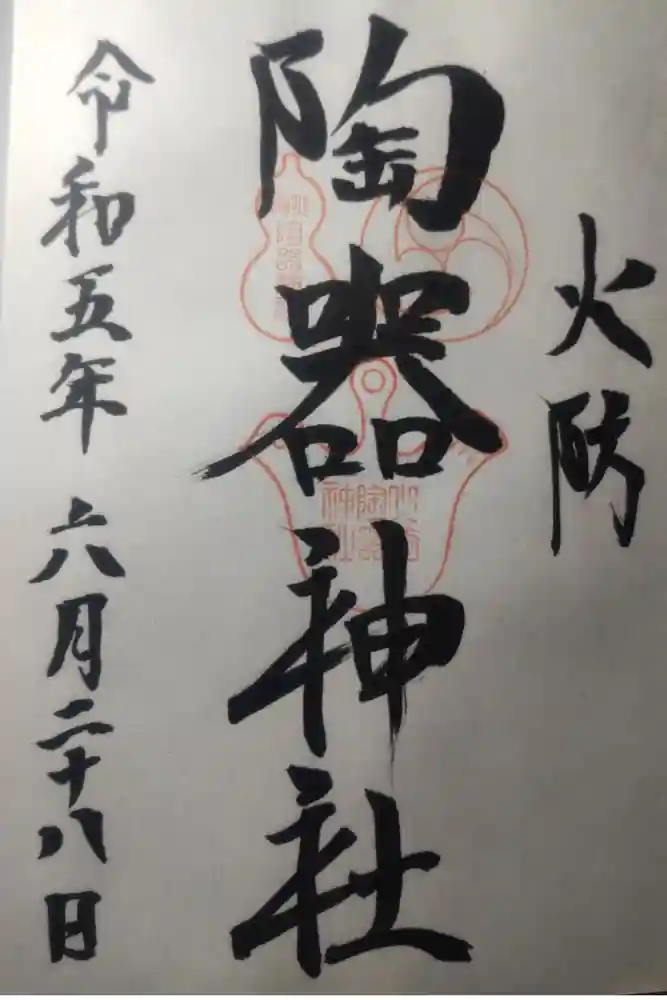 火防
陶器神社
令和五年 六月二十八日